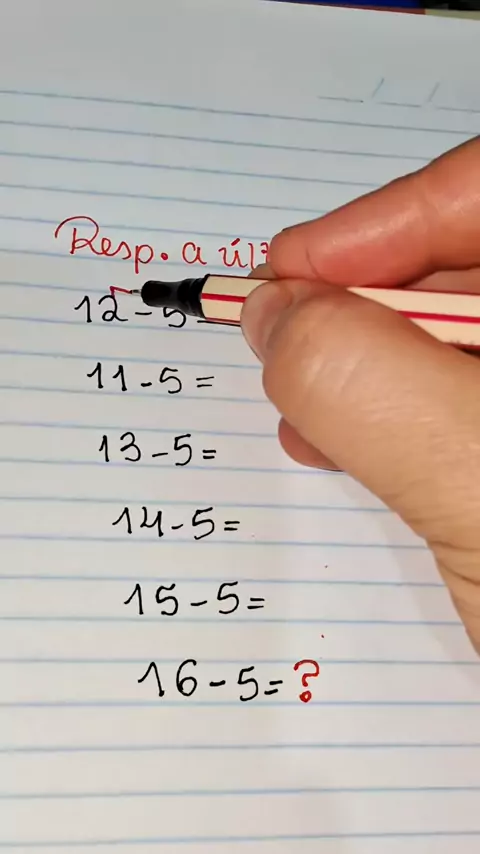 Resp. a
12 - 5 =
11 - 5 =
13 - 5 =
14 - 5 =
15 - 5 =
16 - 5 = ?